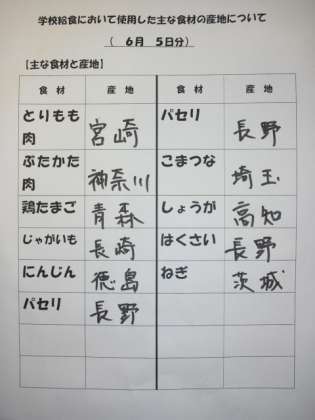 学校給食において使用した主な食材の産地について
（　6月　5日分）
【主な食材と産地】
食　材　産　地　食　材　産　地
とりもも肉　宮崎　パセリ　長野
ぶたかた肉　神奈川　こまつな　埼玉
鶏たまご　青森　しょうが　高知
じゃがいも　長崎　はくさい　長野
にんじん　徳島　ねぎ　茨城
パセリ　長野